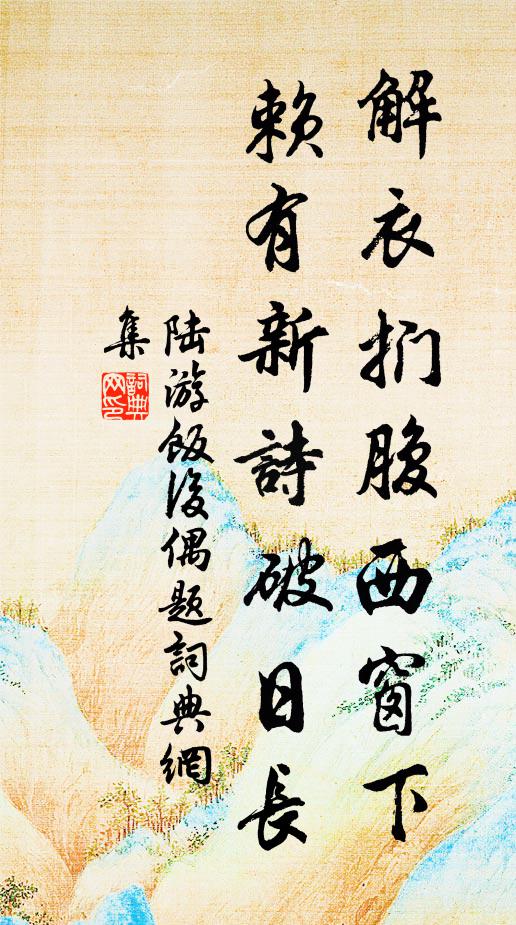 解衣捫腹西窗下
賴有新詩破日長
陆游飯後偶题詞典網
集
詞典
网印